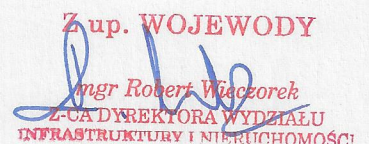 Z up. WOJEWODY
mgr Robert Wieczorek
Z-CA DYREKTORA WYDZIAŁU
INFRASTRUKTURY I NIERUCHOMOŚCI